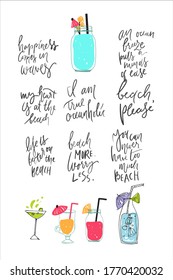 happiness
comes in
waves
an ocean
breeze
puts
minds
at ease
my heart
is at the
beach
I am
true
oceanholic
beach
please
life is
better
the
beach
beach
MORE.
worry
LESS.
you can
never
have too
much
BEACH
shutterstock.com · 1770420032